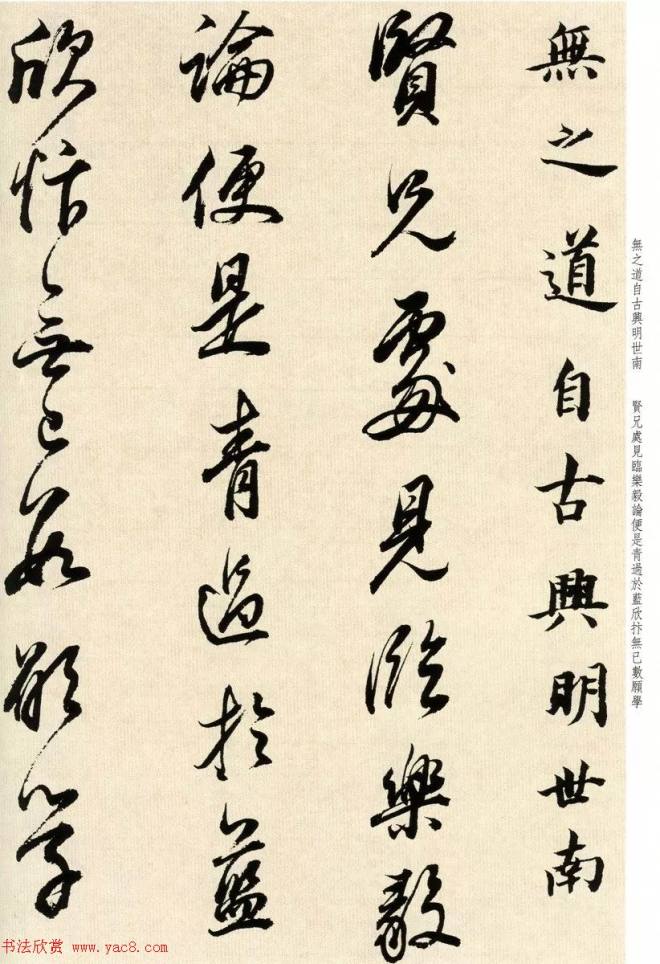 無之道自古興明世南
賢兄處見臨樂毅
論便是青過於藍
欣忭無已數願學
無之道自古興明世南 賢兄處見臨樂毅論便是青過於藍欣抃無已數願學
书法欣赏 www.yac8.com